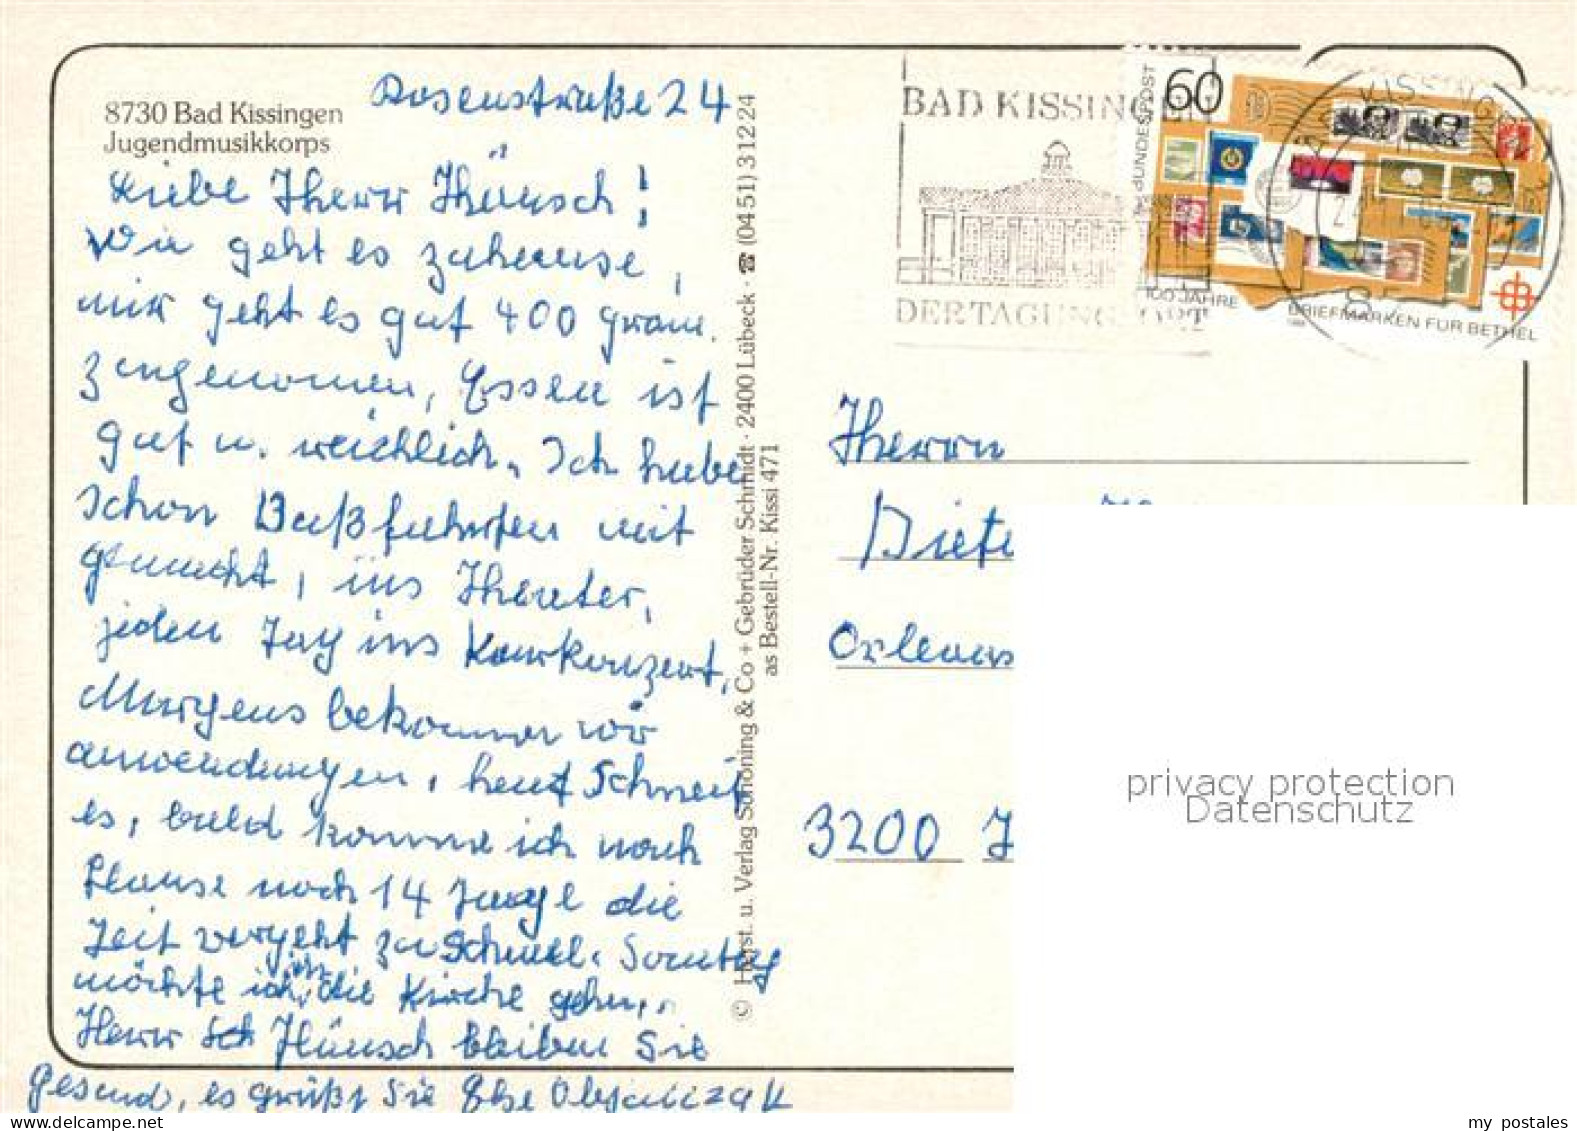 8730 Bad Kissingen
Jugendmusikkorps
Rosenstraße 24
Liebe Herr Hünsch!
Wie geht es zuhause,
mir geht es gut 400 gram.
zugenomen, Essen ist
gut u. reichlich. Ich habe
schon Busfahrten mit
gemacht, ins Theater,
jeden Tag ins Kurkonzert,
Morgens bekommen wir
anwendungen, heut Schneit
es, bald komme ich nach
Hause noch 14 Tage die
Zeit vergeht zu schnell. Sonntag
möchte ich in die Kirche gehen,
Herr Hünsch bleiben Sie
gesund, es grüßt Sie
© Horst. u. Verlag Schöning & Co + Gebrüder Schmidt · 2400 Lübeck · ☎ (04 51) 3 12 24
as Bestell-Nr. Kissi 471
BAD KISSINGEN
DER TAGUNGSORT
60
DEUTSCHE BUNDESPOST
100 JAHRE
BRIEFMARKEN FÜR BETHEL
BAD KISSINGEN
Herrn
Diete
Orleans
3200 H
privacy protection
Datenschutz
my postales
www.delcampe.net